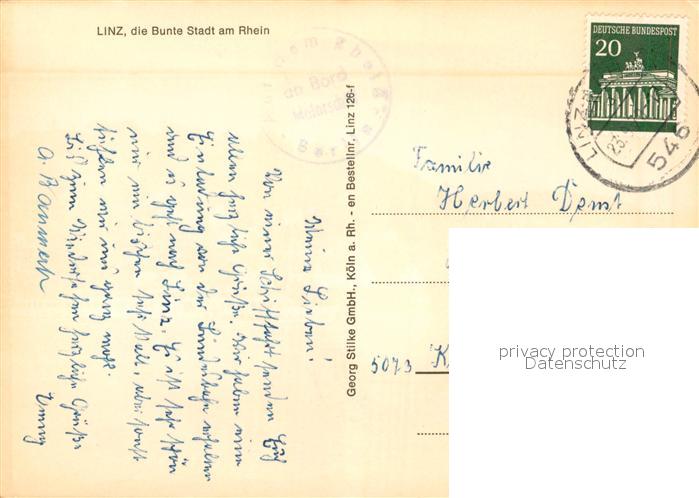 LINZ, die Bunte Stadt am Rhein
Meine Lieben!
Von einer Schifffahrt senden Euch
allen herzliche Grüße. Wir haben eine
Einladung von der erhalten
und es geht nach Linz. Es ist sehr schön
nur ein bißchen sehr voll, aber sonst
fühlen wir uns ganz wohl.
Bis zum Wiedersehen herzliche Grüße
Georg Stilke GmbH., Köln a. Rh. - en Bestellnr. Linz 126-f
an Bord
DEUTSCHE BUNDESPOST
20
LINZ
546
Familie
Herbert
5073 K
privacy protection
Datenschutz